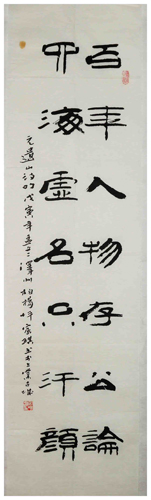 百年人物存公論
四海虛名只汗顏
元遺山詩句戊寅年